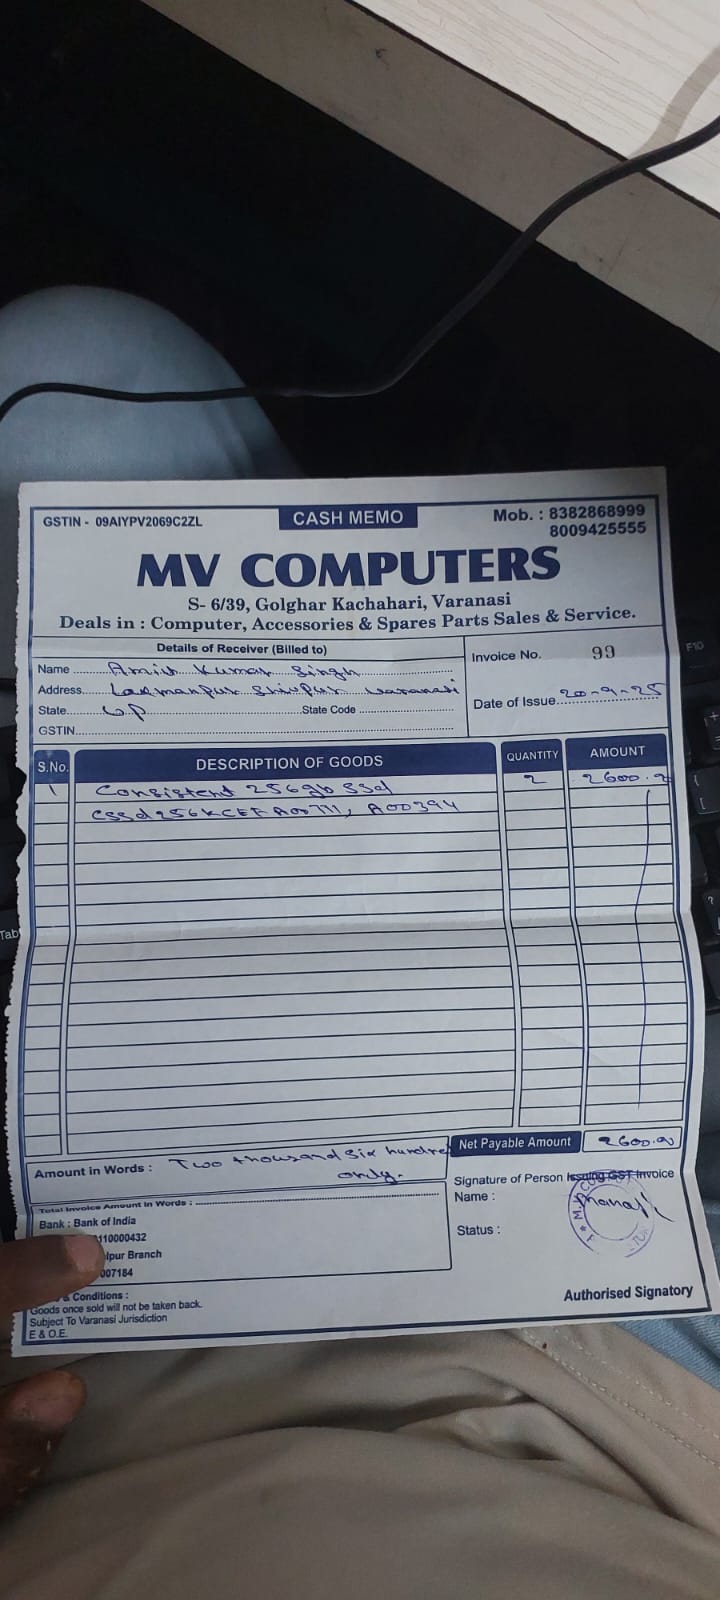 GSTIN - 09AIYPV2069C2ZL
CASH MEMO
Mob. : 8382868999
8009425555
MV COMPUTERS
S- 6/39, Golghar Kachahari, Varanasi
Deals in : Computer, Accessories & Spares Parts Sales & Service.
Details of Receiver (Billed to)
Name Amit Kumar Singh
Address Laxmanpur Shivpur Varanasi
State UP State Code
GSTIN
Invoice No. 99
Date of Issue 20-9-25
S.No. DESCRIPTION OF GOODS QUANTITY AMOUNT
1 Consistent 256gb SSd 2 2600.00
A00394
Net Payable Amount 2600.00
Amount in Words : Two thousand six hundred
only.
Total Invoice Amount in Words :
Bank : Bank of India
110000432
lpur Branch
007184
Signature of Person Issuing GST Invoice
Name :
Status :
& Conditions :
Goods once sold will not be taken back.
Subject To Varanasi Jurisdiction
E & O.E.
Authorised Signatory
F10
Tab